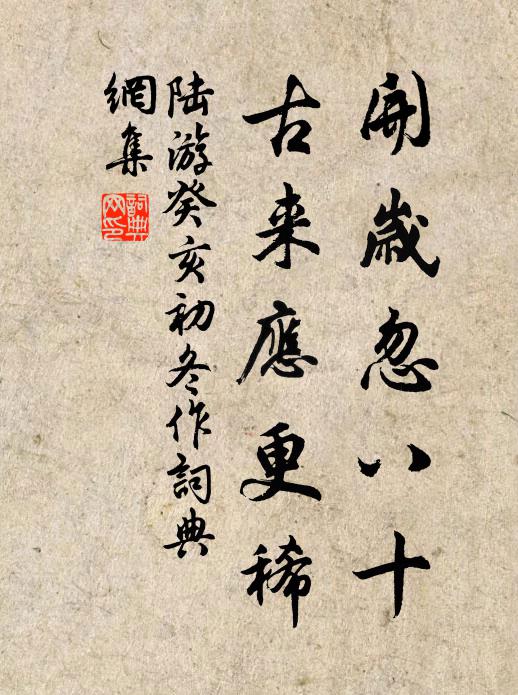 開歲忽八十
古来應更稀
陸游癸亥初冬作詞典
網集
詞典网印